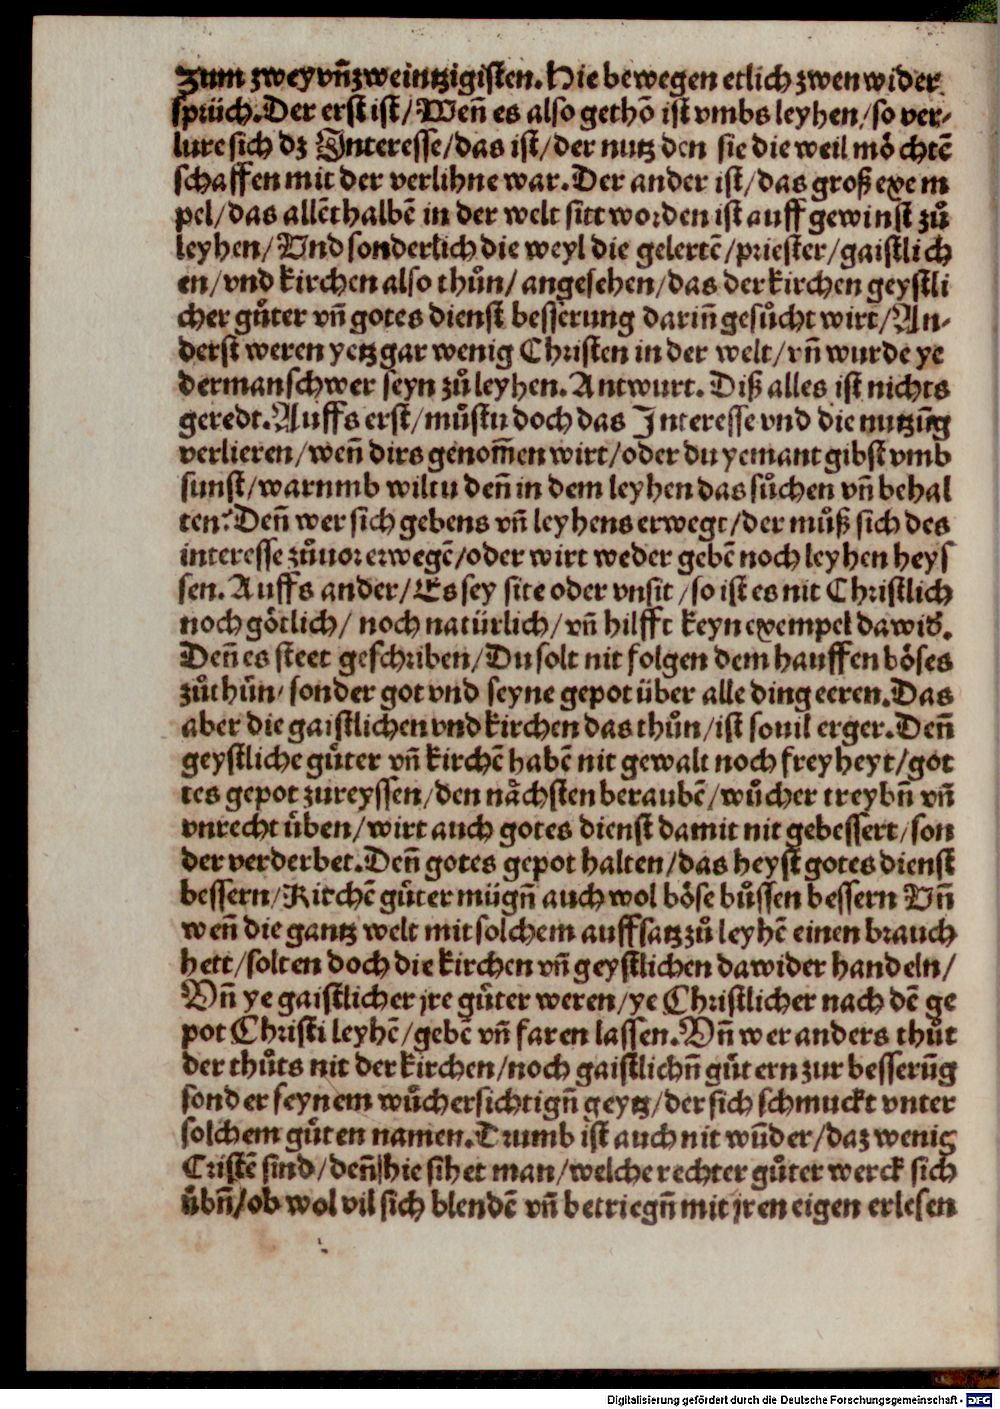 Zum zwey vn̄zweintzigisten. Hie bewegen etlich zwen wider
sprüch. Der erst ist/ Weñ es also gethō ist vmbs leyhen/ so ver-
lure sich dz Interesse/das ist/der nutz den sie die weil möchtē
schaffen mit der verlihne war. Der ander ist/das groß exem
pel/das allēthalbē in der welt sitt worden ist auff gewinst zů
leyhen/ Vnd sonderlich die weyl die gelertē/priester/gaistlich
en/vnd kirchen also thůn/ angesehen/das der kirchen geystli
cher gůter vn̄ gotes dienst besserung dariñ gesůcht wirt/An-
derst weren yetz gar wenig Christen in der welt/vn̄ wurde ye
derman schwer seyn zů leyhen. Antwurt. Diß alles ist nichts
geredt. Auffs erst/můstu doch das Interesse vnd die nutzūg
verlieren/weñ dirs genom̄en wirt/oder du yemant gibst vmb
sunst/warumb wiltu deñ in dem leyhen das sůchen vn̄ behal
ten? Deñ wer sich gebens vn̄ leyhens erwegt/der můß sich des
interesse zůuor erwegē/oder wirt weder gebē noch leyhen heys
sen. Auffs ander/ Es sey site oder vnsit/so ist es nit Christlich
noch götlich/ noch natürlich/vn̄ hilfft keyn exempel dawid̕.
Deñ es steet geschriben/Du solt nit folgen dem hauffen böses
zůthůn/ sonder got vnd seyne gepot über alle ding eeren. Das
aber die gaistlichen vnd kirchen das thůn/ist souil erger. Deñ
geystliche gůter vn̄ kirchē habē nit gewalt noch freyheyt/got
tes gepot zureyssen/den nächsten beraubē/wůcher treybñ vn̄
vnrecht üben/wirt auch gotes dienst damit nit gebessert/son
der verderbet. Deñ gotes gepot halten/das heyst gotes dienst
bessern/Kirchē gůter mügñ auch wol böse bůssen bessern Vn̄
weñ die gantz welt mit solchem auffsatz zů leyhē einen brauch
hett/solten doch die kirchen vn̄ geystlichen dawider handeln/
Vn̄ ye gaistlicher jre gůter weren/ye Christlicher nach dē ge
pot Christi leyhē/gebē vn̄ faren lassen. Vn̄ wer anders thůt
der thůts nit der kirchen/noch gaistlichñ gůtern zur besserūg
sonder seynem wůchersichtigñ geytz/der sich schmuckt vnter
solchem gůten namen. Drumb ist auch nit wūder/daz wenig
Cristē sind/deñ hie sihet man/welche rechter gůter werck sich
übñ/ob wol vil sich blendē vn̄ betriegñ mit jren eigen erlesen
Digitalisierung gefördert durch die Deutsche Forschungsgemeinschaft - DFG